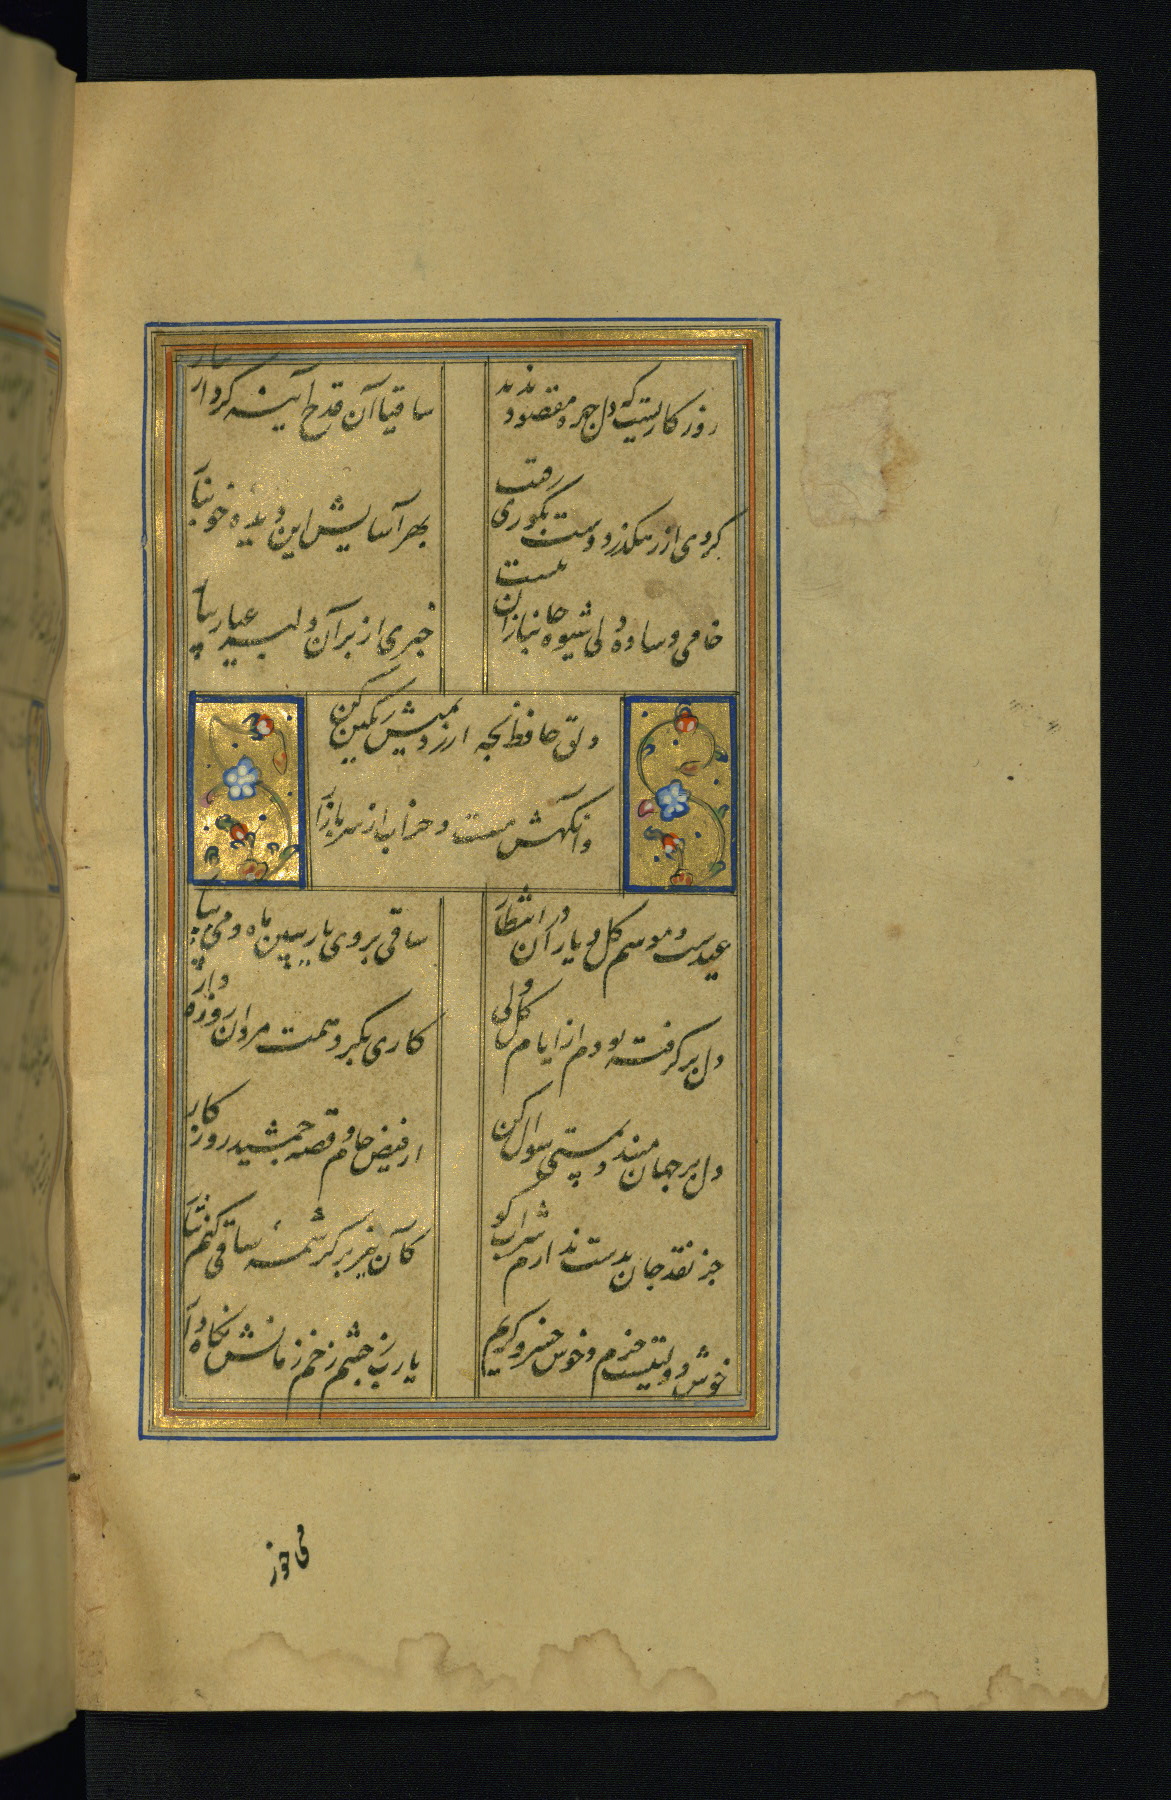 روز کاریست که دل چهره مقصود ندید
ساقیا آن قدح آینه کردار بیار
کردی از رهکذر دوست بکوری رقیب
بهر آسایش این دیده خونبار بیار
خامی و ساده دلی شیوه جانبازان نیست
خبری از بر آن دلبر عیار بیار
دلق حافظ بچه ارزد بمیش رنکین کن
وانکهش مست و خراب از سر بازار بیار
عیدست و موسم کل و یاران در انتظار
ساقی بروی یار ببین ماه و می بیار
دل بر کرفته بودم از ایام کل ولی
کاری بکرد همت مردان روزه دار
دل بر جهان مبند و بمستی سوال کن
از فیض جام و قصه جمشید روزکار
جز نقد جان بدست ندارم شراب کو
کآن نیز بر کرشمه ساقی کنم نثار
خوش دولتیست خرم و خوش خسرو کریم
یا رب ز چشم زخم زمانش نکاه دار
می خور